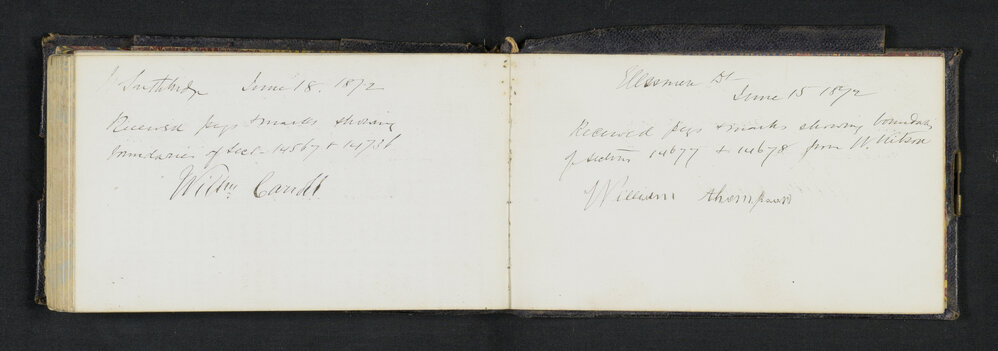 Southbridge June 18. 1872
Received pegs & marks showing
boundaries of Secs 14567 & 14736
Willm
Ellesmere
June 15 1872
Received pegs & marks showing boundaries
of sections 14677 & 14678 from W. Kitson
William thompson